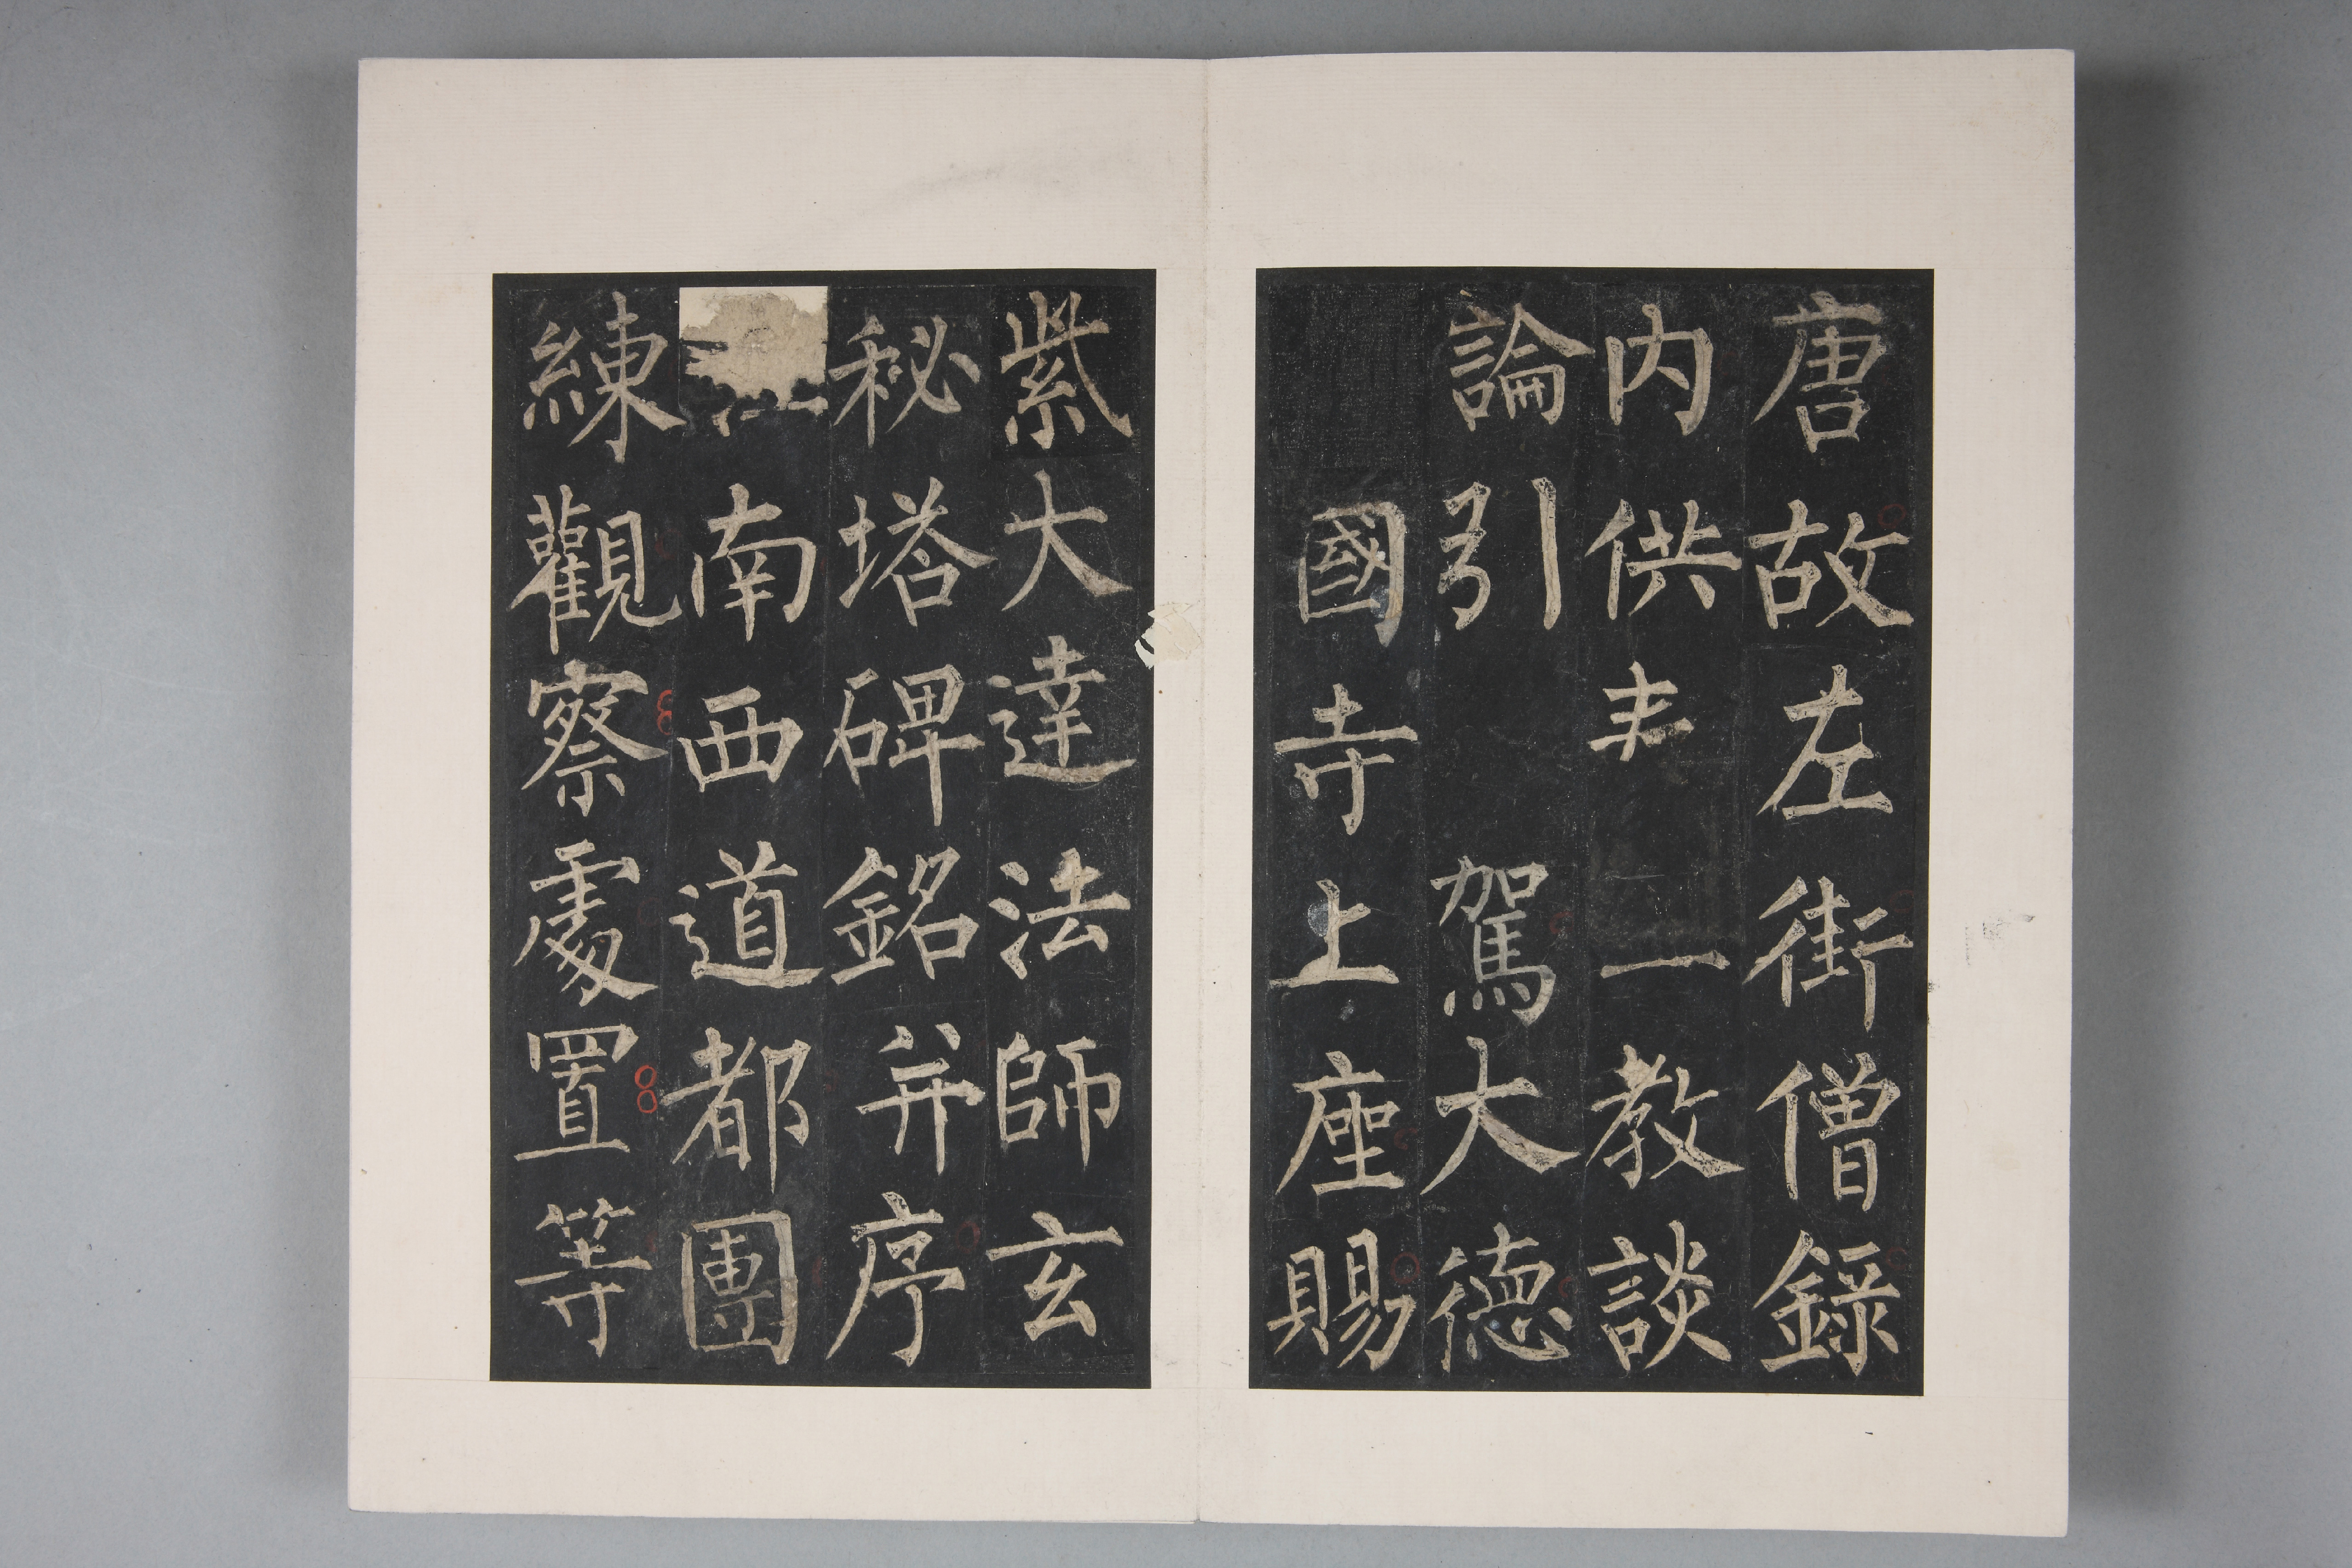 唐故左街僧録
内供一教談
論引駕大德
國寺上座賜
紫大達法師玄
秘塔碑銘并序
南西道都團
練觀察處置等